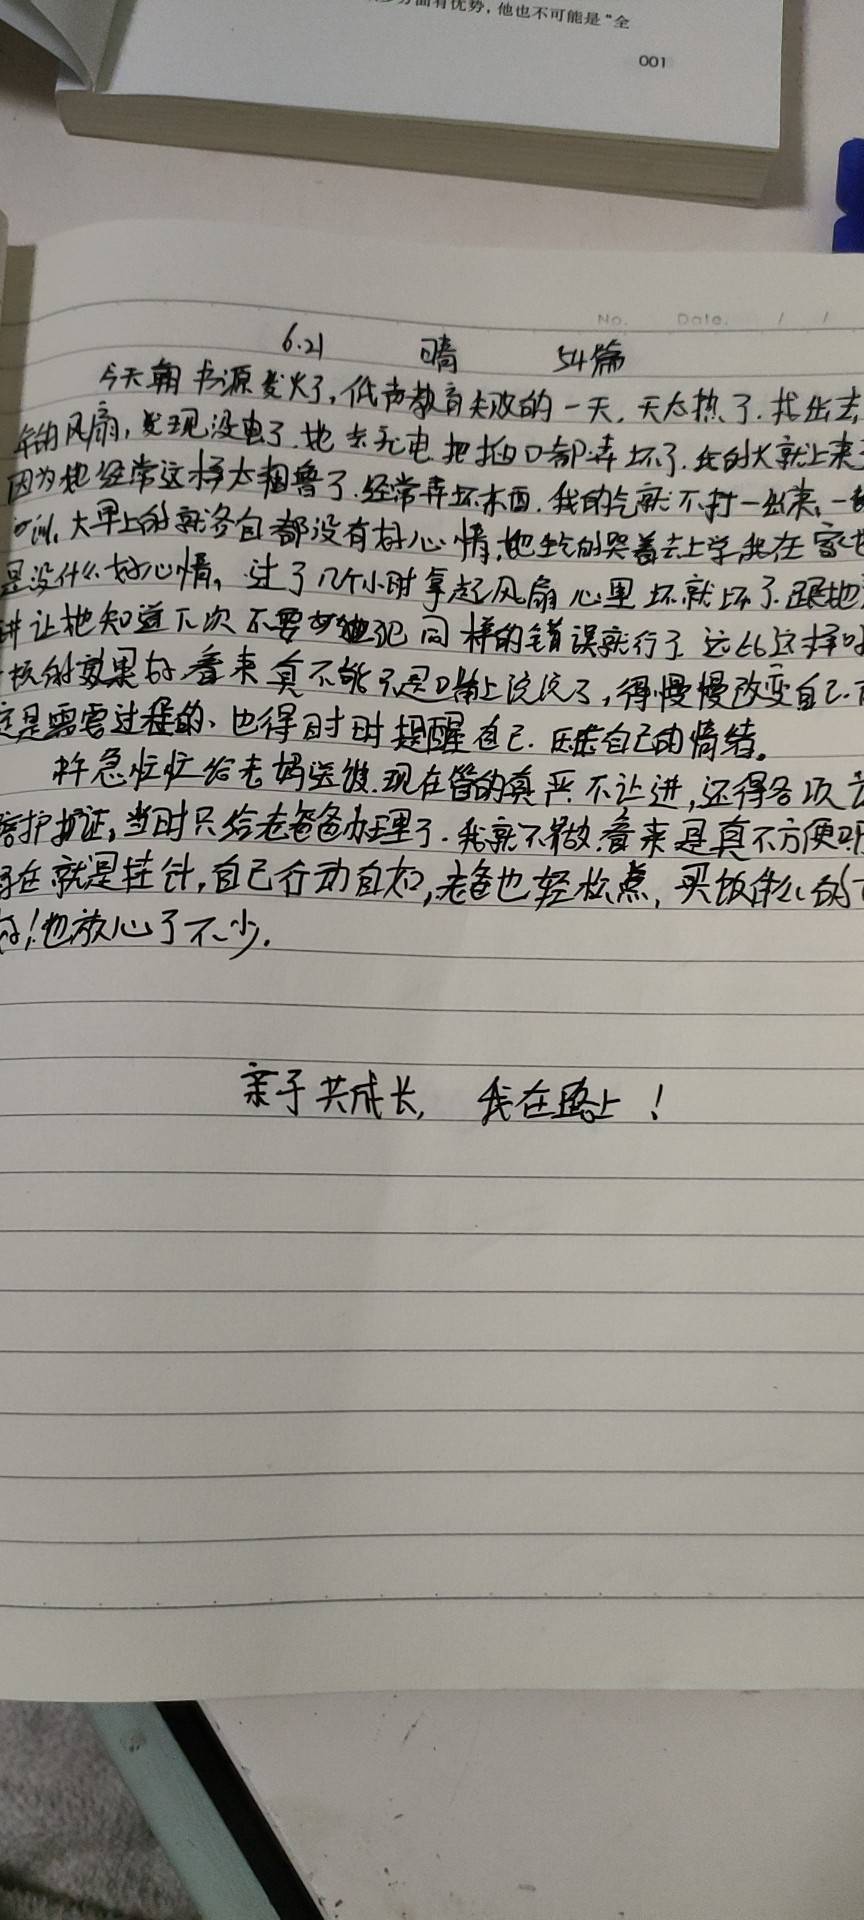 多方面有优势，他也不可能是“全
001
No. Date. / /
6.21 晴 54篇
今天朝书源发火了，低声教育失败的一天，天太热了.找出去
年的风扇，发现没电了.她去充电把插口都弄坏了.我的火就上来了
因为她经常这样太粗鲁了.经常弄坏东西.我的气就不打一处来，一
大早上的就各自都没有好心情，她生气的哭着去上学我在家也
是没什么好心情，过了几个小时拿起风扇心里坏就坏了.跟她
讲让她知道下次不要犯同样的错误就行了远比这样
的效果好.看来真不能只是口嘴上说说了，得慢慢改变自己.
这是需要过程的、也得时时提醒自己.压住自己的情绪。
急忙忙给老妈送饭.现在管的真严不让进，还得各项
陪护证，当时只给老爸爸办理了.我就不做.看来是真不方便
现在就是挂针，自己行动自如，老爸也轻松点，买饭什么的
好！也放心了不少.
亲子共成长，我在路上！